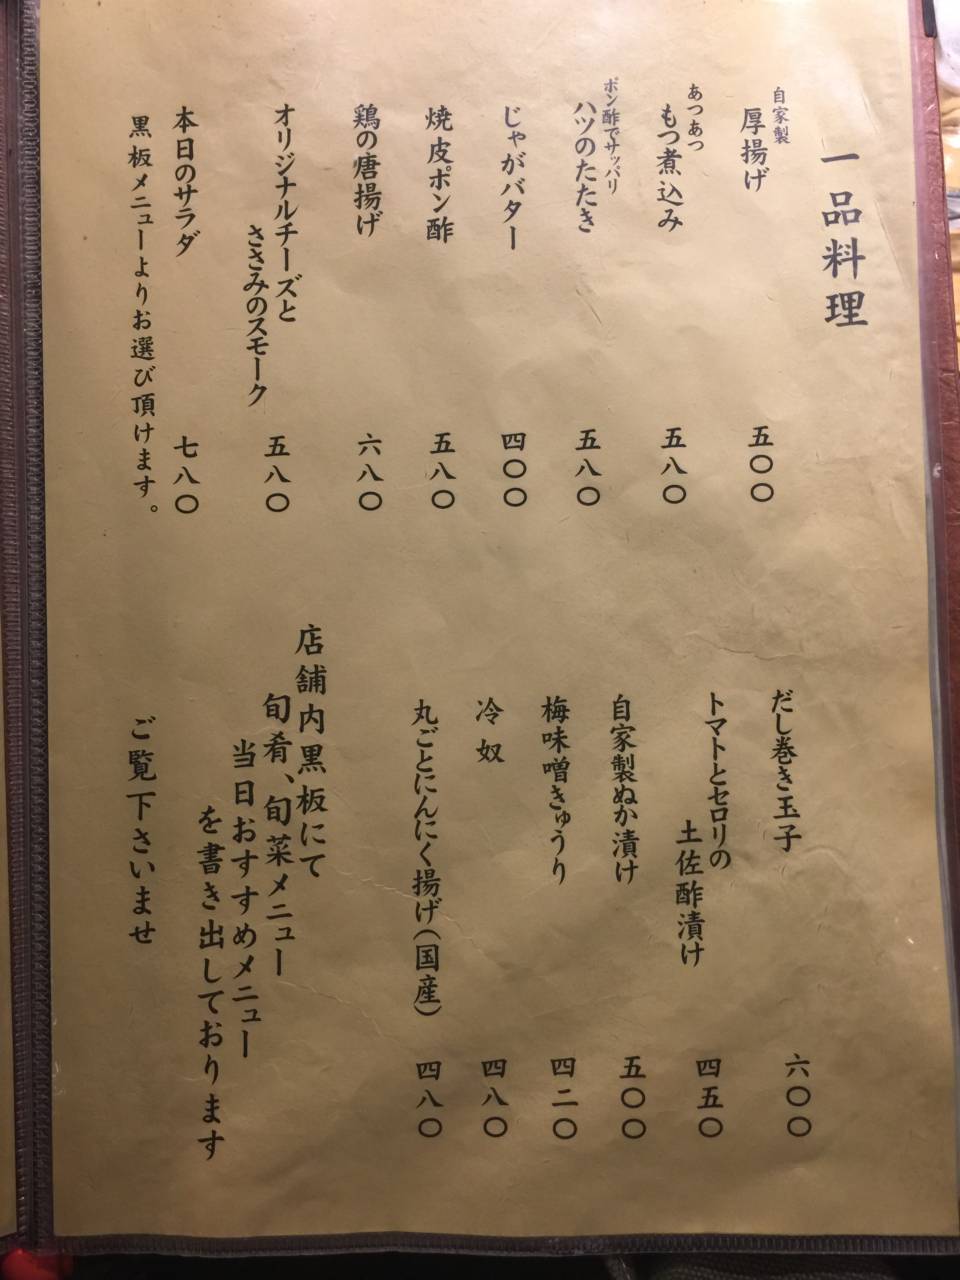 一品料理
自家製
厚揚げ 五〇〇
あつあつ
もつ煮込み 五八〇
ポン酢でサッパリ
ハツのたたき 五八〇
じゃがバター 四〇〇
焼皮ポン酢 五八〇
鶏の唐揚げ 六八〇
オリジナルチーズと
ささみのスモーク 五八〇
本日のサラダ 七八〇
黒板メニューよりお選び頂けます。
だし巻き玉子 六〇〇
トマトとセロリの
土佐酢漬け 四五〇
自家製ぬか漬け 五〇〇
梅味噌きゅうり 四二〇
冷奴 四八〇
丸ごとにんにく揚げ(国産) 四八〇
店舗内黒板にて
旬肴、旬菜メニュー
当日おすすめメニュー
を書き出しております
ご覧下さいませ